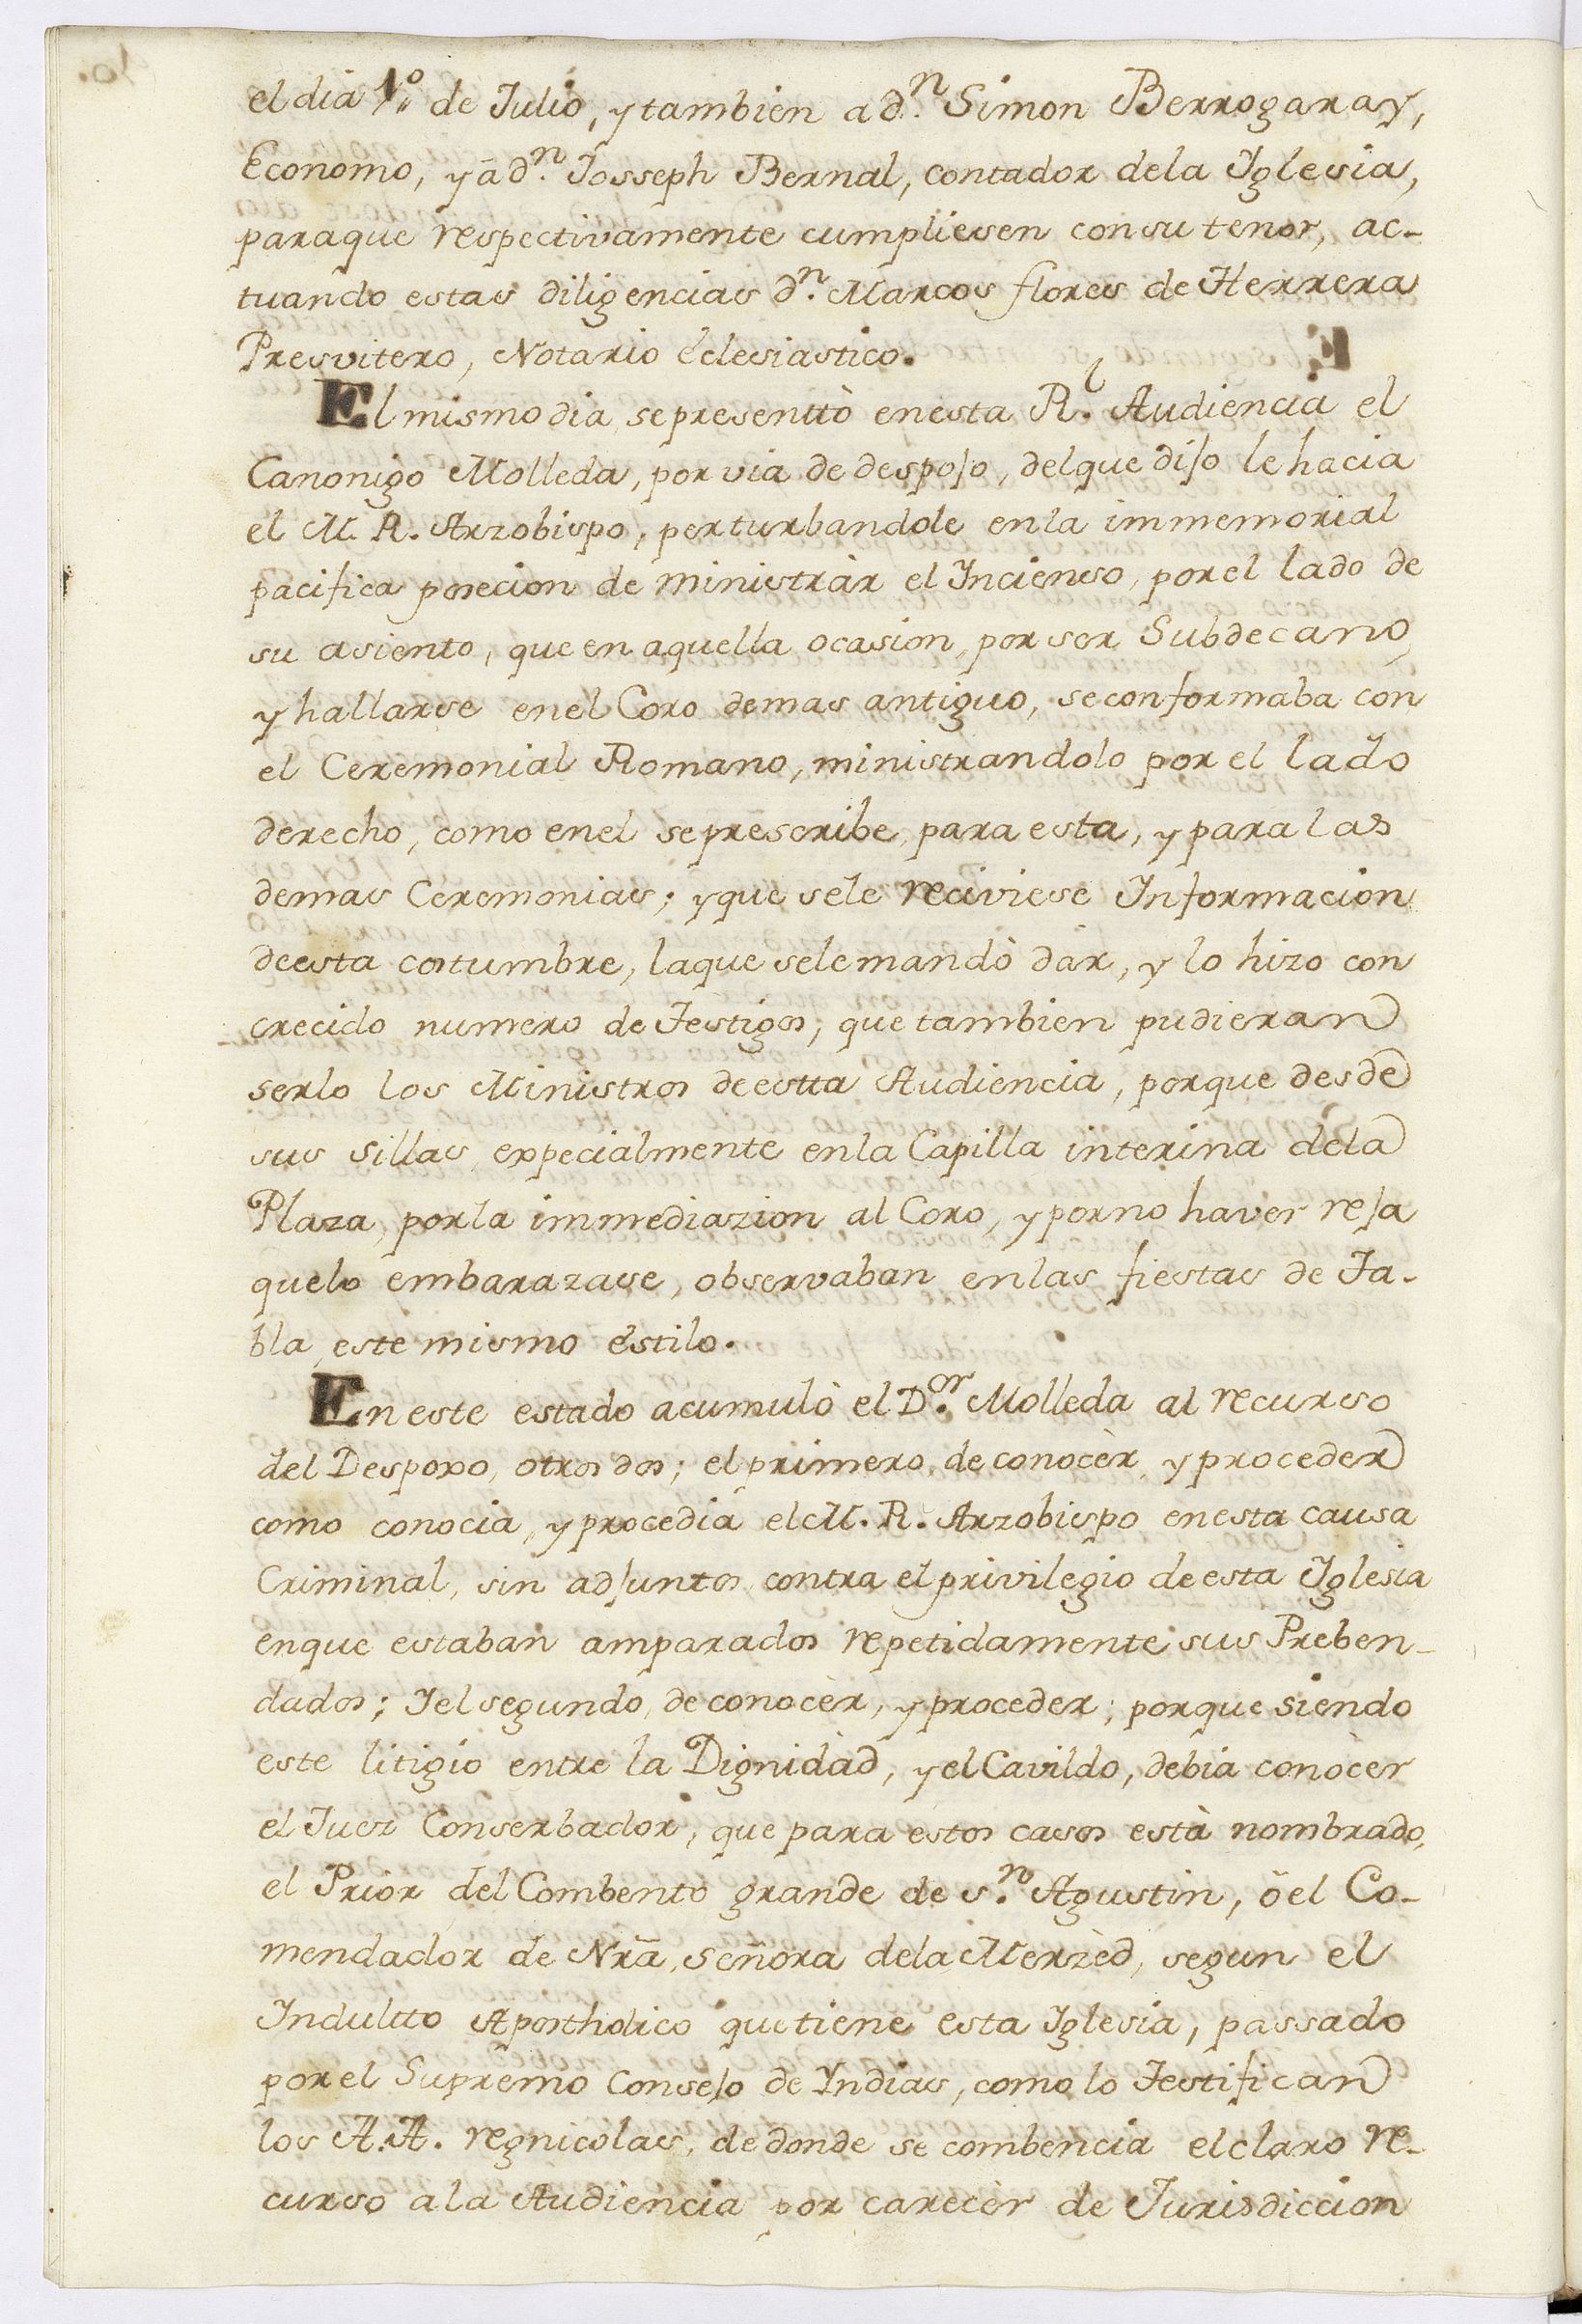 el dia 1.º de Julio, y tambien a d.ⁿ Simon Berrogaray,
Economo, y ā d.ⁿ Josseph Bernal, contador dela Yglesia,
paraque respectivamente cumpliesen con su tenor, ac-
tuando estas diligencias d.ⁿ Marcos flores de Herrera
Presvitero, Notario éclesiastico.
El mismo dia, se presenttò en esta R.ˡ Audiencia el
Canonigo Molleda, por via de despojo, del que dijo le hacia
el M. R. Arzobispo, perturbandole en la immemorial
pacifica posecion de ministràr el Yncienso, por el lado de
su asiento, que en aquella ocasion, por ser Subdecano,
y hallarse en el Coro demas antiguo, se conformaba con
el Ceremonial Romano, ministrandolo por el lado
derecho, como en el se prescribe, para esta, y para las
demas Ceremonias; y que sele reciviese Ynformacion
de esta costumbre, la que sele mandò dàr, y lo hizo con
crecido numero de Testigos, que tambien pudieran
serlo los Ministros de estta Audiencia, porque desde
sus sillas, expecialmente en la Capilla interina dela
Plaza, por la immediazion al Coro, y por no haver reja
quelo embarazase, observaban en las fiestas de Ta-
bla, este mismo éstilo.
En este estado acumulò el D.ᵒʳ Molleda al recurso
del Despoxo, otros dos; el primero, de conocèr, y proceder
como conocia, y procedia el M. R. Arzobispo en esta causa
Criminal, sin adjuntos, contra el privilegio de esta Yglesia
en que estaban amparados repetidamente sus Preben-
dados; Y el segundo, de conocèr, y proceder; porque siendo
este litigio entre la Dignidàd, y el Cavildo, debia conòcer
el Juez Conserbador, que para estos casos està nombrado,
el Prior del Combento grande de s.ⁿ Agustin, ö el Co-
mendador de Nrā, Señora dela Merzèd, segun el
Yndultto Apostholico que tiene esta Yglesia, passado
por el Supremo Consejo de Yndias, como lo Testifican
los A.A. regnicolas, de donde se combencia el claro re-
curso a la Audiencia por carecèr de Jurisdiccion